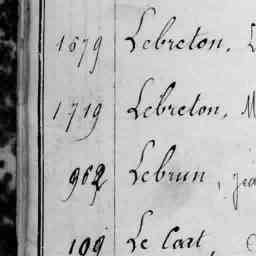 1679 Lebreton, L
1719 Lebreton, M
962 Lebrun, jea
109 Le Cart,